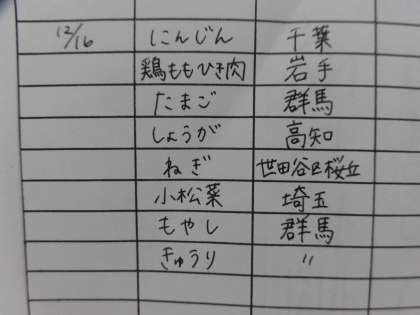 12/16 にんじん 千葉
鶏ももひき肉 岩手
たまご 群馬
しょうが 高知
ねぎ 世田谷区桜丘
小松菜 埼玉
もやし 群馬
きゅうり 〃